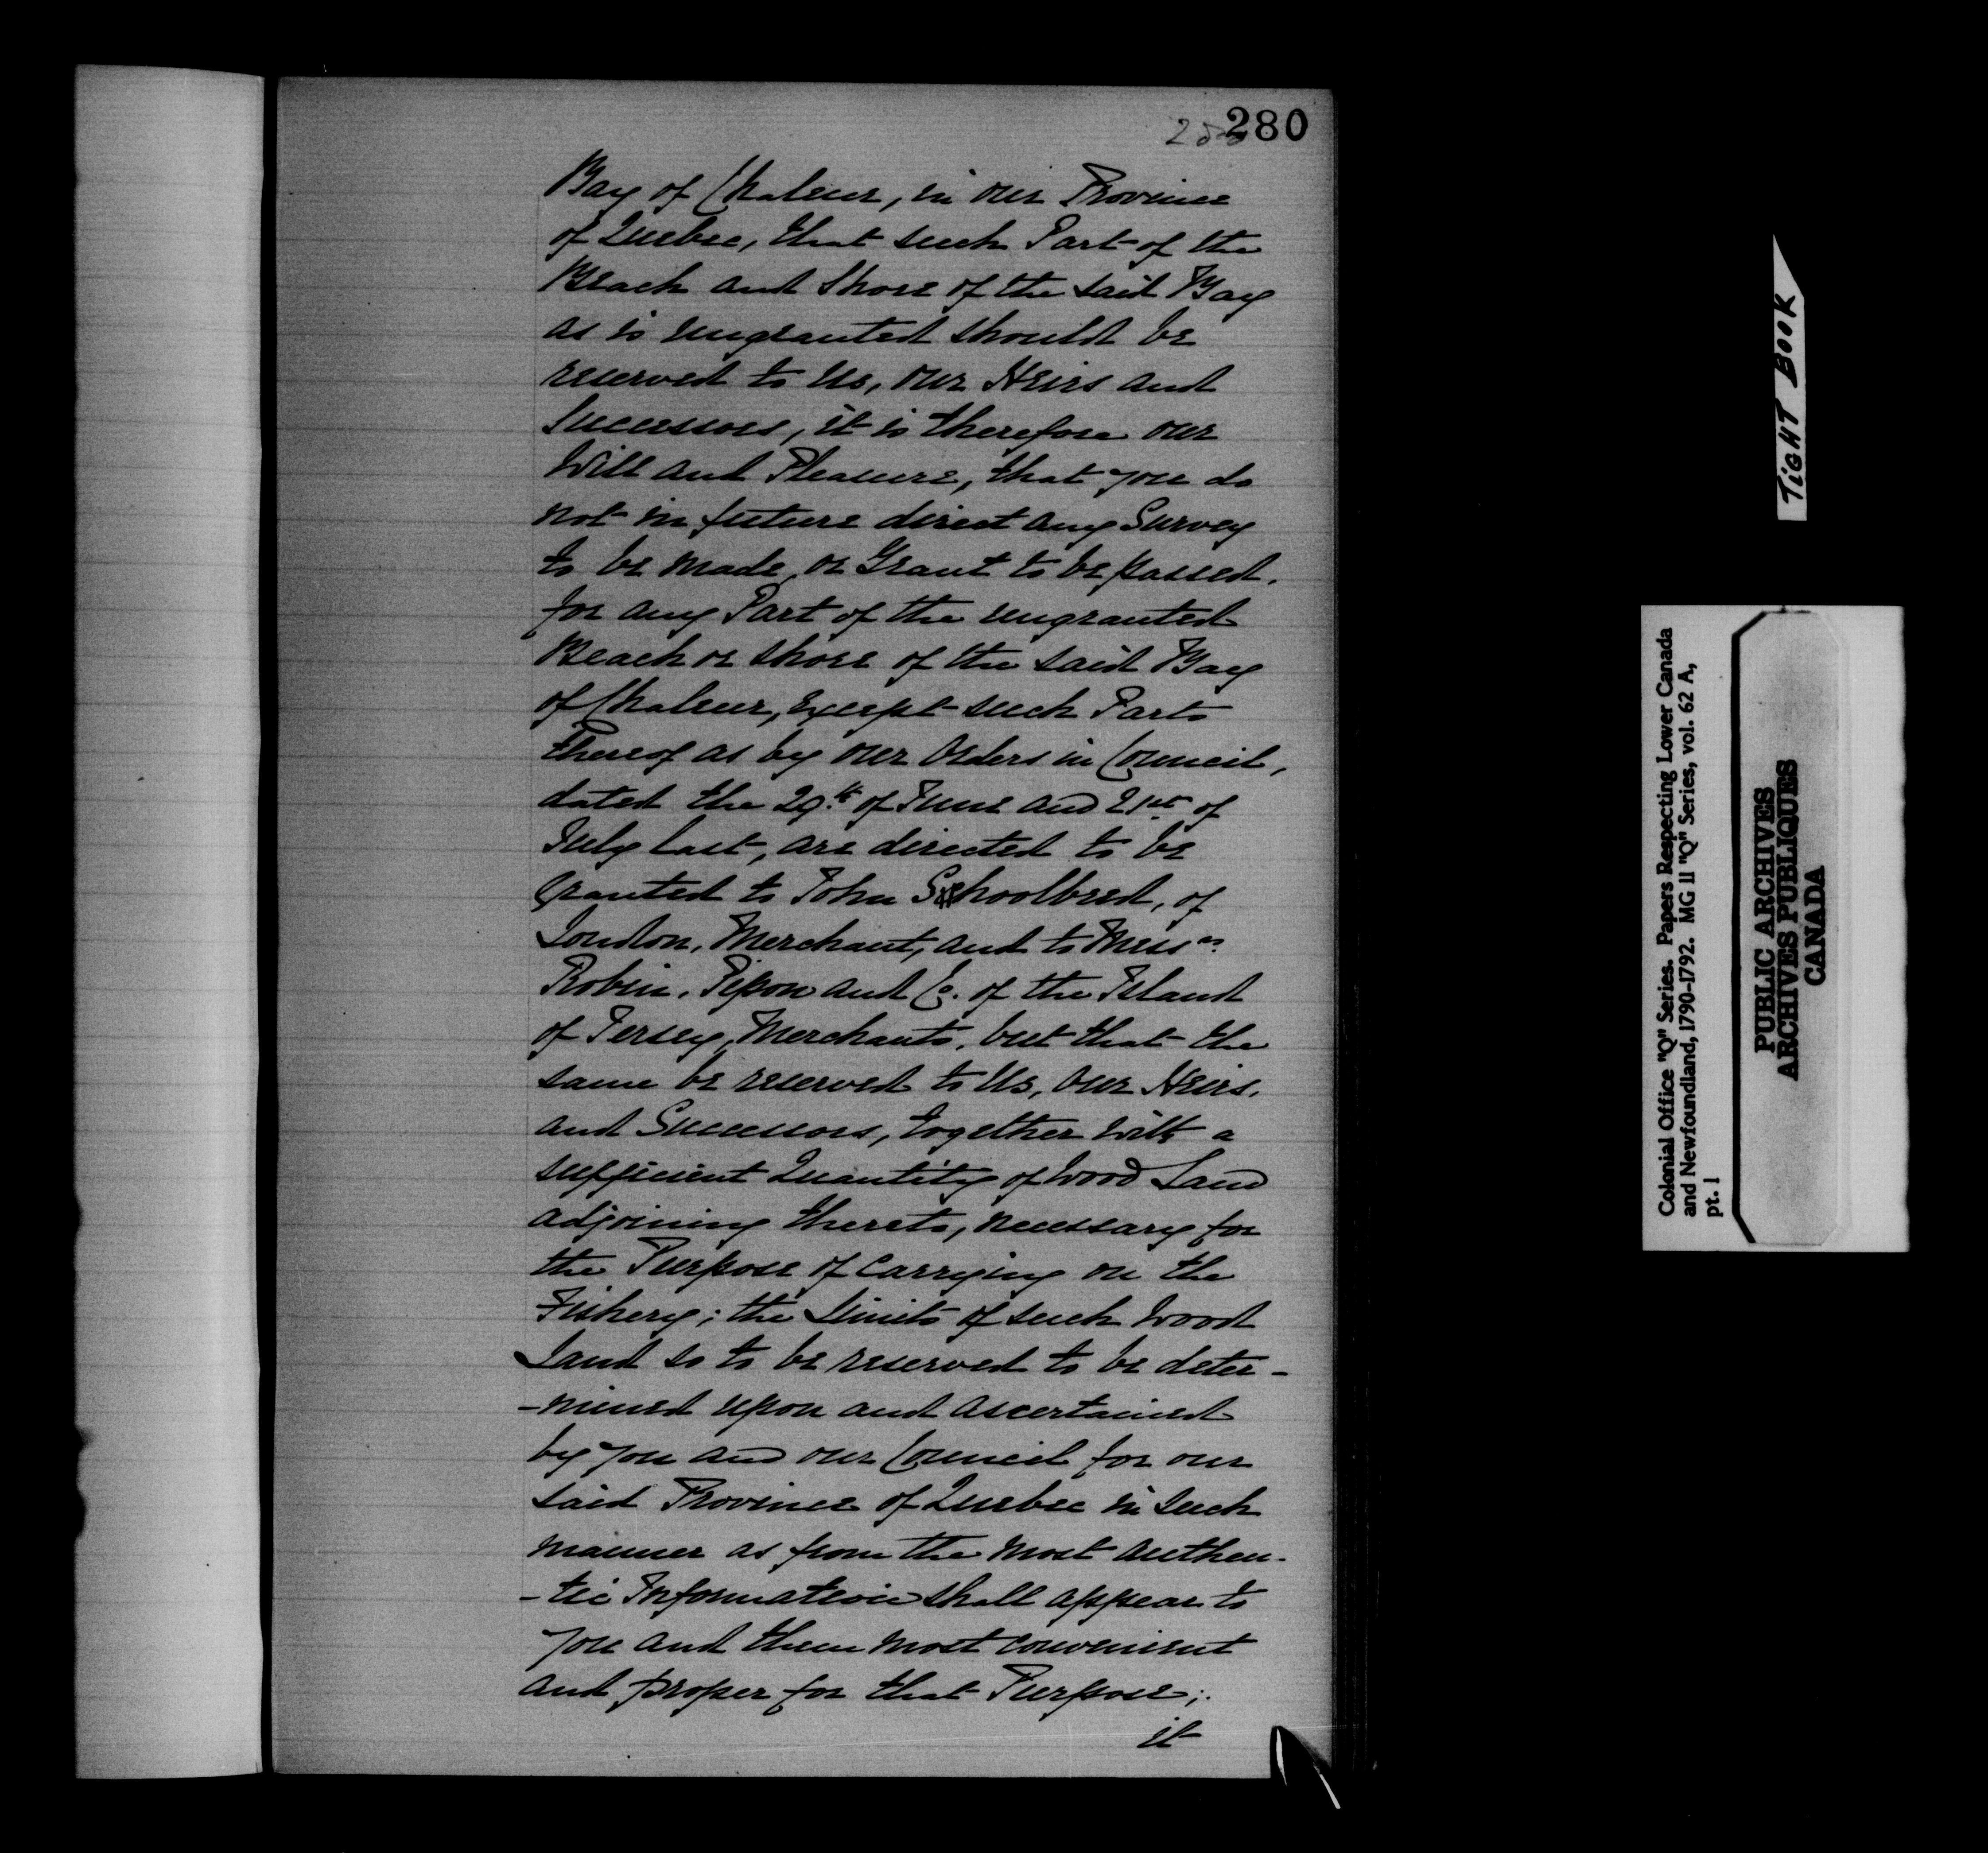 280
Bay of Chaleur, in our Province
of Quebec, that such Part of the
Beach and Shore of the said Bay
as is ungranted should be
reserved to us, our Heirs and
Successors, it is therefore our
Will and Pleasure, that you do
not in future direct any Survey
to be made, or Grant to be passed,
for any Part of the ungranted
Beach or Shore of the said Bay
of Chaleur, except such Parts
thereof as by our Orders in Council,
dated the 29th of June and 21st of
July last, are directed to be
granted to John Schoolbred, of
London, Merchant, and to Messrs
Robin, Pipon and Co. of the Island
of Jersey, Merchants, but that the
same be reserved to Us, our Heirs,
and Successors, together with a
sufficient Quantity of Wood Land
adjoining thereto, necessary for
the Purpose of carrying on the
Fishery; the Limits of such Wood
Land so to be reserved to be deter-
-mined upon and ascertained
by you and our Council for our
said Province of Quebec in such
manner as from the most authen-
-tic Information shall appear to
you and them most convenient
and proper for that Purpose;
it
TIGHT BOOK
Colonial Office "Q" Series. Papers Respecting Lower Canada
and Newfoundland, 1790-1792. MG 11 "Q" Series, vol. 62 A,
pt. 1
PUBLIC ARCHIVES
ARCHIVES PUBLIQUES
CANADA